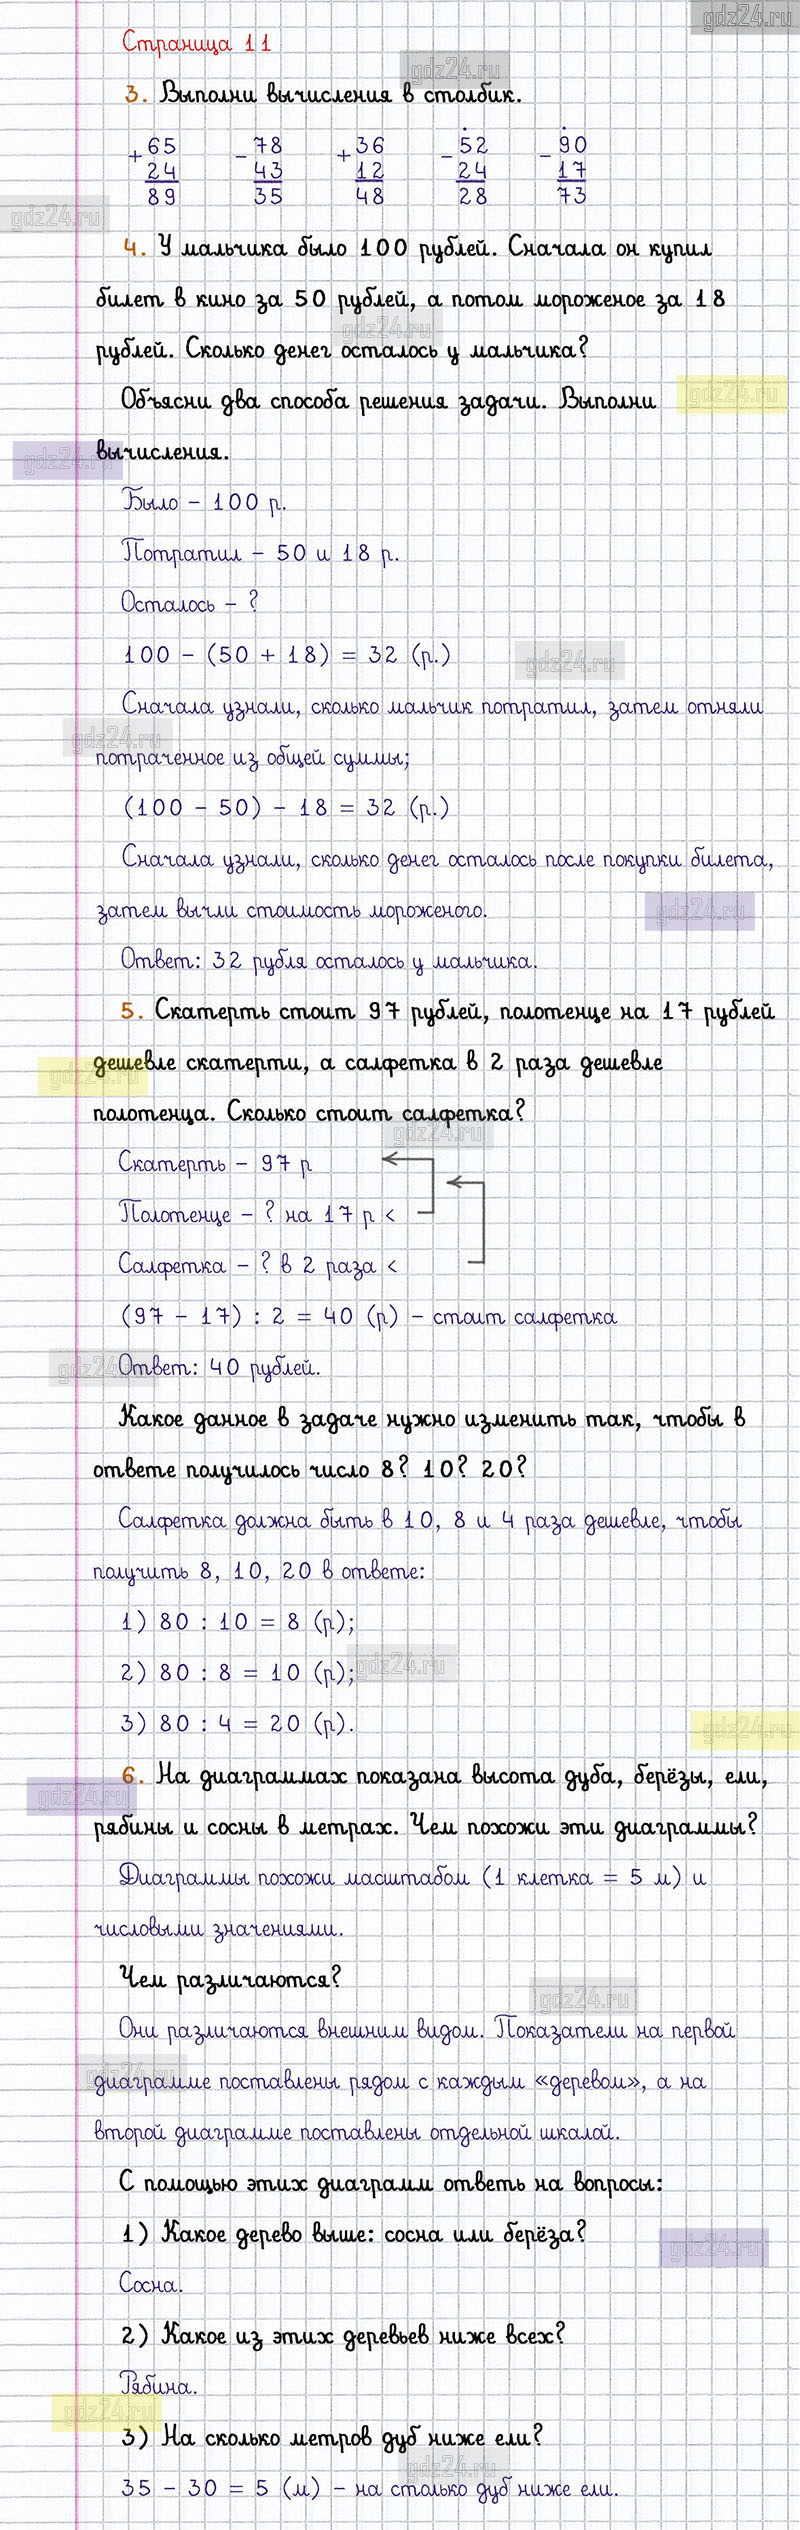 gdz24.ru
Страница 11
gdz24.ru
3. Выполни вычисления в столбик.
+ 65 - 78 + 36 - 52 - 90
24 43 12 24 17
89 35 48 28 73
gdz24.ru
4. У мальчика было 100 рублей. Сначала он купил
билет в кино за 50 рублей, а потом мороженое за 18
gdz24.ru
рублей. Сколько денег осталось у мальчика?
gdz24.ru
Объясни два способа решения задачи. Выполни
вычисления.
gdz24.ru
Было - 100 р.
Потратил - 50 и 18 р.
Осталось - ?
100 - (50 + 18) = 32 (р.)
gdz24.ru
Сначала узнали, сколько мальчик потратил, затем отняли
gdz24.ru
потраченное из общей суммы;
(100 - 50) - 18 = 32 (р.)
Сначала узнали, сколько денег осталось после покупки билета,
затем вычли стоимость мороженого.
gdz24.ru
Ответ: 32 рубля осталось у мальчика.
5. Скатерть стоит 97 рублей, полотенце на 17 рублей
дешевле скатерти, а салфетка в 2 раза дешевле
gdz24.ru
полотенца. Сколько стоит салфетка?
gdz24.ru
Скатерть - 97 р
Полотенце - ? на 17 р <
Салфетка - ? в 2 раза <
(97 - 17) : 2 = 40 (р) - стоит салфетка
gdz24.ru
Ответ: 40 рублей.
Какое данное в задаче нужно изменить так, чтобы в
ответе получилось число 8? 10? 20?
Салфетка должна быть в 10, 8 и 4 раза дешевле, чтобы
получить 8, 10, 20 в ответе:
1) 80 : 10 = 8 (р);
2) 80 : 8 = 10 (р);
gdz24.ru
3) 80 : 4 = 20 (р).
gdz24.ru
6. На диаграммах показана высота дуба, берёзы, ели,
gdz24.ru
рябины и сосны в метрах. Чем похожи эти диаграммы?
Диаграммы похожи масштабом (1 клетка = 5 м) и
числовыми значениями.
Чем различаются?
gdz24.ru
Они различаются внешним видом. Показатели на первой
gdz24.ru
диаграмме поставлены рядом с каждым «деревом», а на
второй диаграмме поставлены отдельной шкалой.
С помощью этих диаграмм ответь на вопросы:
1) Какое дерево выше: сосна или берёза?
gdz24.ru
Сосна.
2) Какое из этих деревьев ниже всех?
Рябина.
gdz24.ru
3) На сколько метров дуб ниже ели?
gdz24.ru
35 - 30 = 5 (м) - на столько дуб ниже ели.